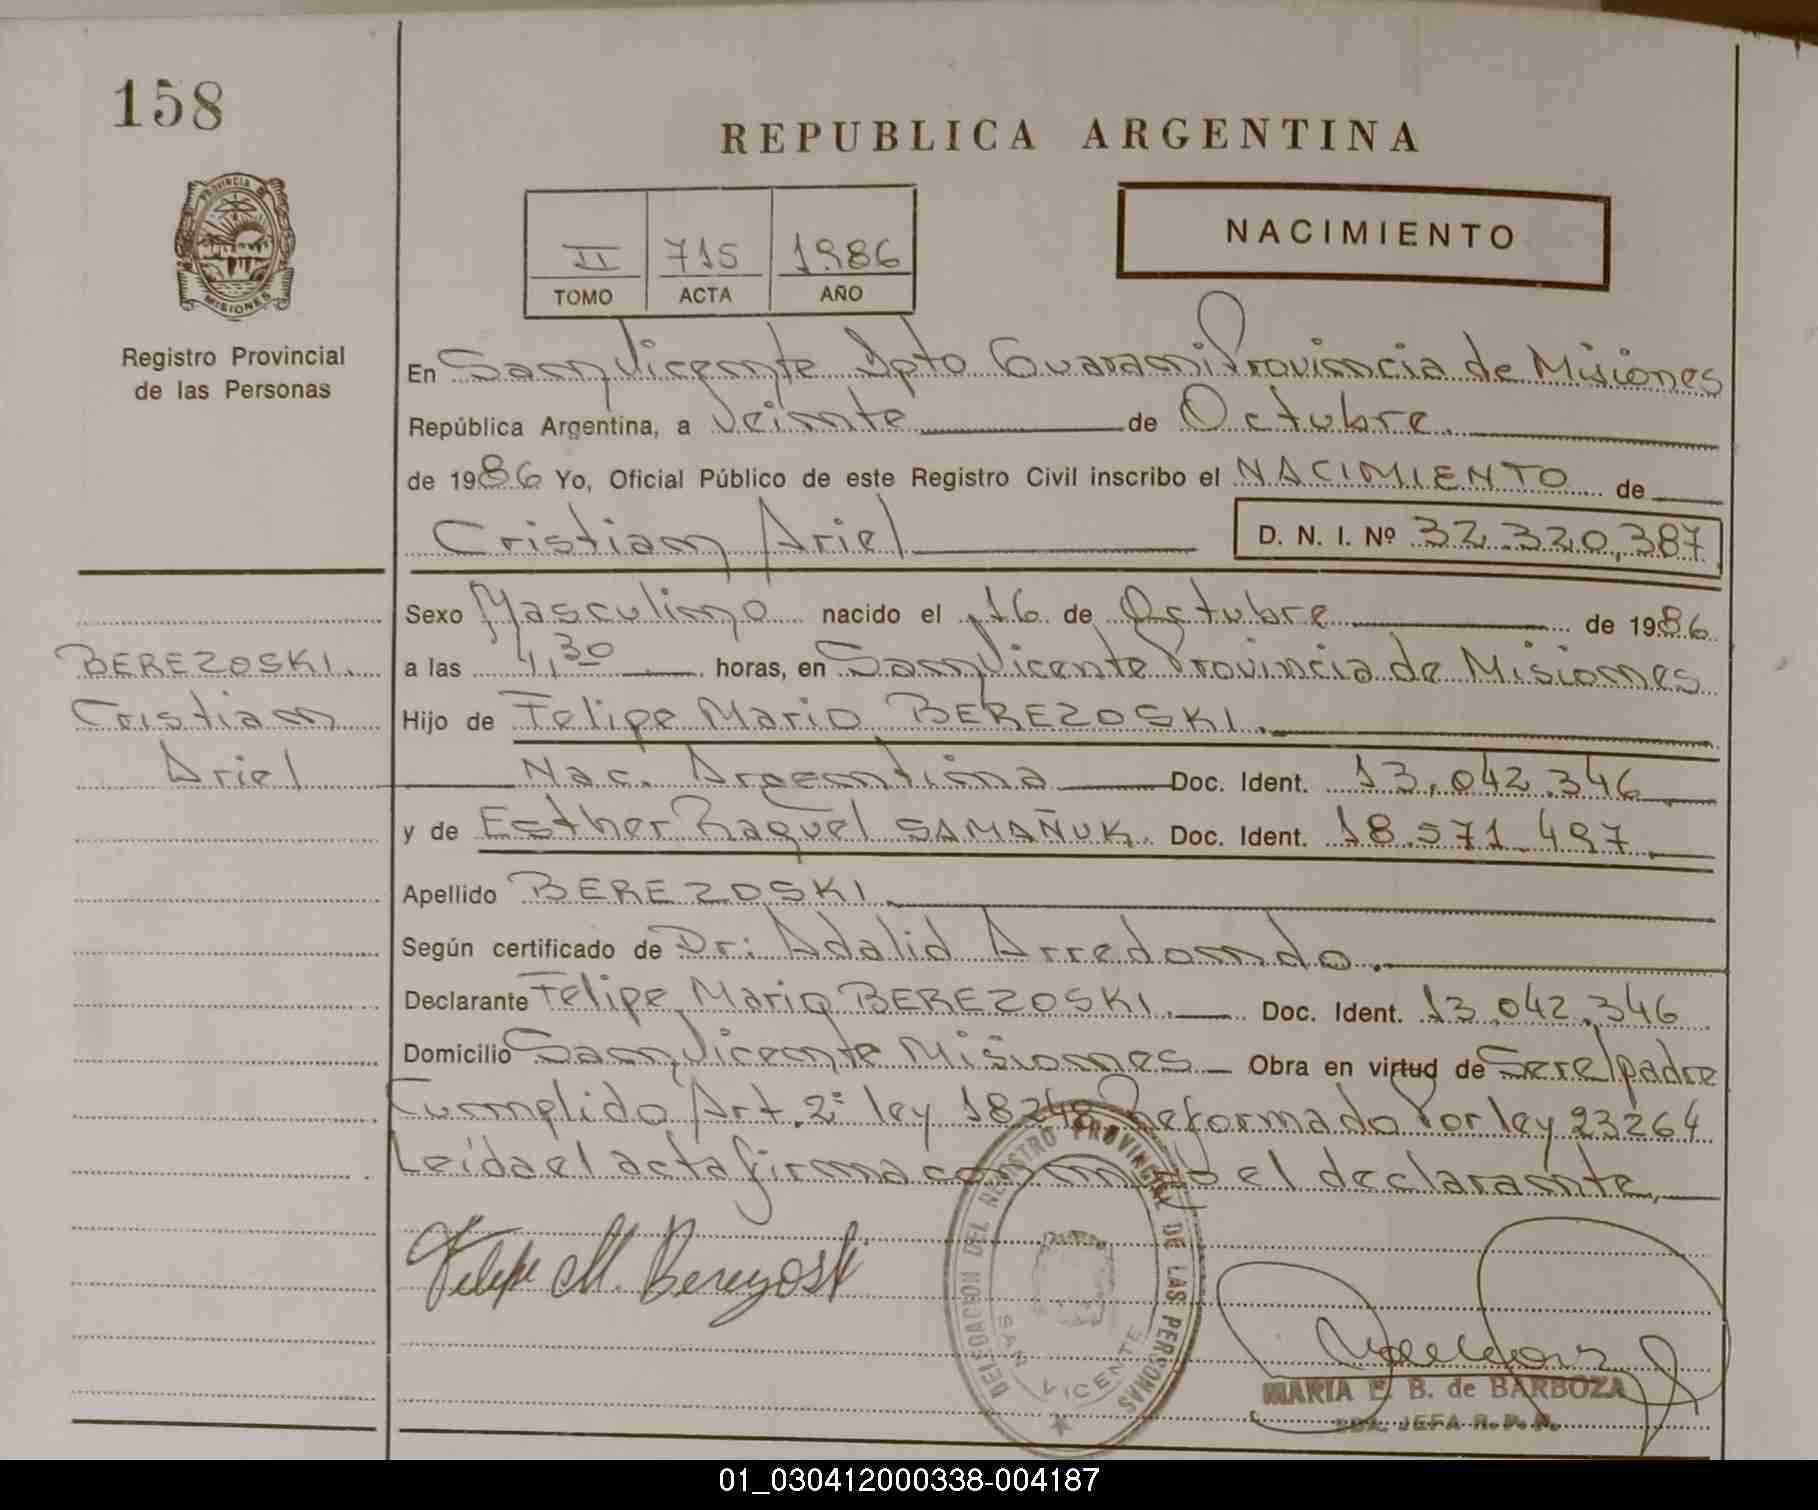 158
REPUBLICA ARGENTINA
PROVINCIA D MISIONES
II 715 1986
TOMO ACTA AÑO
NACIMIENTO
Registro Provincial
de las Personas
En San Vicente Dpto Guarani Provincia de Misiones
República Argentina, a Veinte de Octubre.
de 1986 Yo, Oficial Público de este Registro Civil inscribo el NACIMIENTO de
Cristian Ariel
D. N. I. Nº 32.320,387
Sexo Masculino nacido el 16 de Octubre de 1986
a las 4,30 horas, en San Vicente Provincia de Misiones
Hijo de Felipe Mario BEREZOSKI.
Nac. Argentina Doc. Ident. 13.042.346
y de Esther Raquel SAMAÑUK. Doc. Ident. 18.571.497
Apellido BEREZOSKI
Según certificado de Dr: Adalid Arredondo.
Declarante Felipe Mario BEREZOSKI. Doc. Ident. 13.042.346
Domicilio San Vicente Misiones Obra en virtud de Ser el padre
Cumplido Art. 2º ley 18248 Reformado Por ley 23264
Leida el acta firma conmigo el declarante,
BEREZOSKI.
Cristian
Ariel
Felipe M. Berezoski
DELEGACION DEL REGISTRO PROVINCIAL DE LAS PERSONAS
SAN VICENTE
MARIA E. B. de BARBOZA
JEFA R. P. P.
01_030412000338-004187